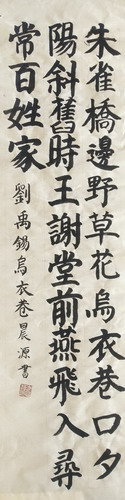 朱雀橋邊野草花烏衣巷口夕
陽斜舊時王謝堂前燕飛入尋
常百姓家
劉禹錫烏衣巷晨源書